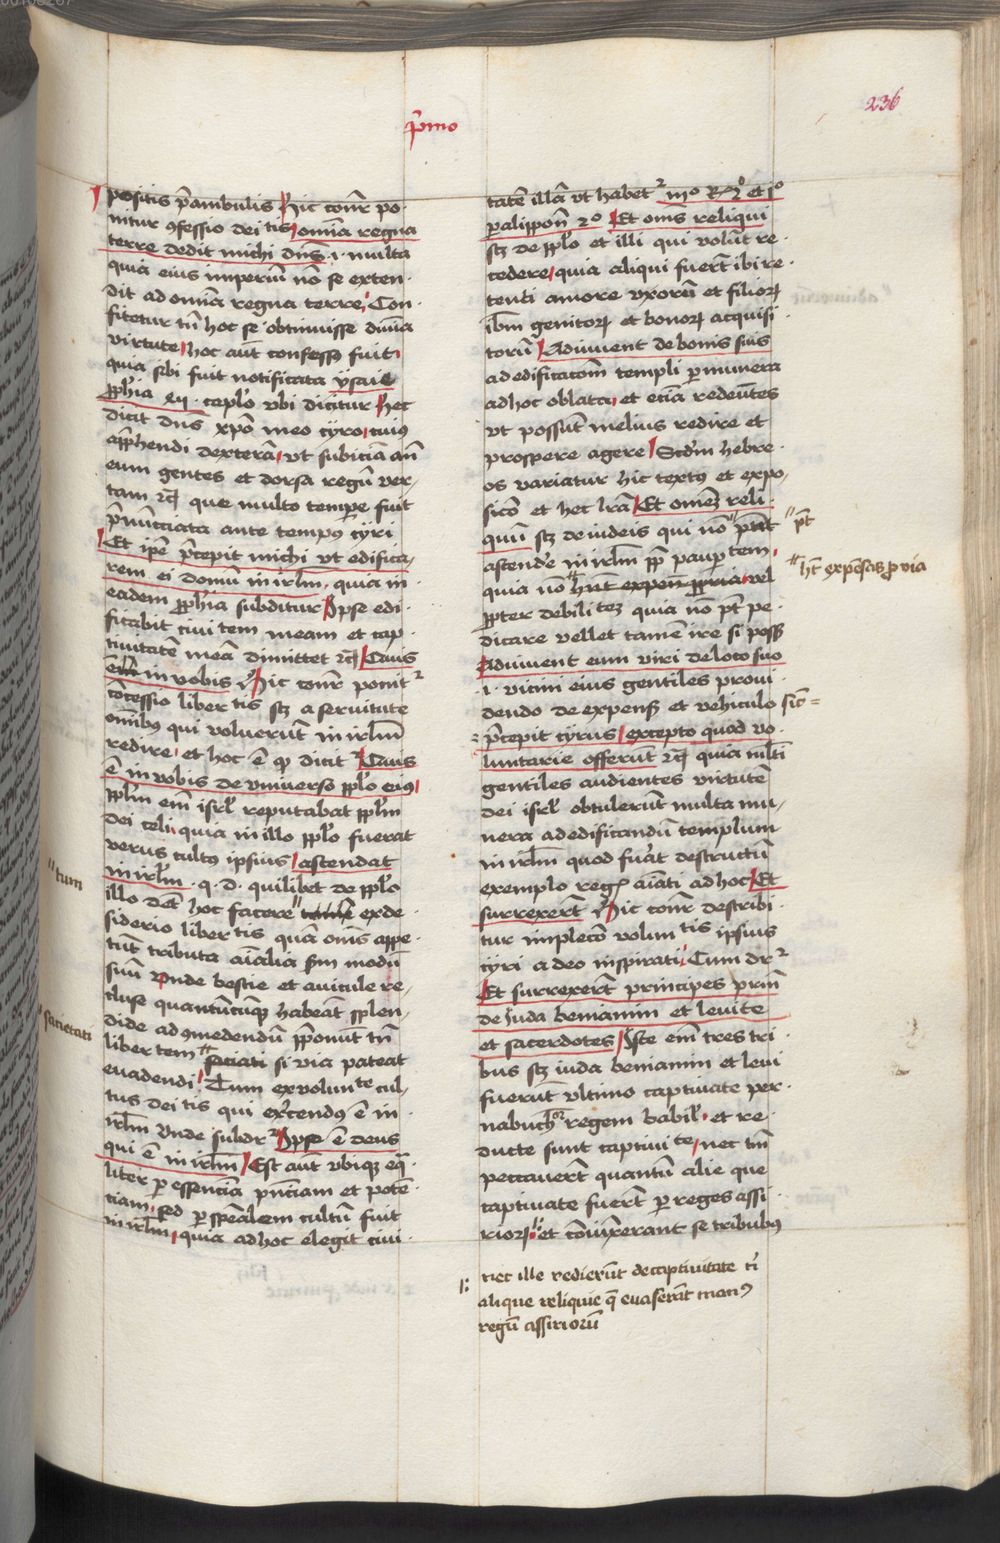 236
p̄mo
positis p̄ambulis Hic con̄r po
nitur ꝯfessio dei tis omīa regna
terre dedit michi dn̄s .i. multa
quia eius imperiū nō se exten
dit ad omīa regna terre Con
fitetur tn̄ hoc se obtinuisse diuīa
virtute hoc aūt confess9 fuit
quia sibi fuit notificata ysaie
ꝓph̄ia xlv caplo vbi dicitur Hec
dicit dn̄s xp̄o meo cyro cuius
app̄hendi dexterā vt subiciā an̄
eum gentes et dorsa regū ver
tam rc̄ que multo tempe fuit
p̄nūcciata ante temp9 cyri
Et ip̄e p̄cepit michi vt edifica
rem ei domū in irlm̄ quia in
eadem ꝓph̄ia subditur Ipse edi
ficabit ciui tem meam et cap
tiuitatē meā dimittet rc̄ Quis
est in vobis Hic con̄r ponit2
cōcessio liber tis sc̄ a seruitute
omīb9 qui voluerūt in irlm̄
redire et hoc ē qd dicit2 Quis
ē in vobis de vniuerso pplo eius
pplm̄ em̄ isrl̄ reputabat pplm̄
dei celi quia in illo pplo fuerat
verus cult9 ipsius ascendat
in irlm̄ .q.d. quilibet de pplo
illo dꝫ hoc facere exde
siderio liber tis quā om̄s appe
tūt tributa aīalia sm̄ modū
suū Vnde bestie et auicule re
cluse quantūcūqꝫ habeāt splen
dide ad ꝯmedendū p̄ponūt tn̄
liber tem saciati si via pateat
euadendi Cum ex volun te cul
tus dei tis qui ex̄cend9 ē in
irlm̄ Vnde subdr2 Ipse ē deus
qui ē in irlm̄ Est aūt vbiqꝫ eq̄
liter p essenciā pn̄ciam et potē
ciam sed p spēalem cultū fuit
in irlm̄ quia ad hoc elegit ciui
"tum
"sacietati
tatē illā vt habet2 iiio R 2o et io
palippōn 2o Et om̄s reliqui
sꝫ de pplo et illi qui volūt re
cedere quia aliqui fuer̄t ibi re
tenti amore vxorū et filioꝝ
ibm̄ genitoꝝ et bonoꝝ acquisi
torū Adiuuent de bonis suis
ad edificacōm templi p munera
ad hoc oblata et eciā redeūtes
vt possūt melius redire et
prospere agere Scd̄m hebre
os variatur hic text9 et expo
sicō et het lrā Et omēꝫ reli
quū sꝫ de iudeis qui nō "ptāt
ascende in irlm̄ ꝓp paup tem
quia nō "hūt expen ꝓpria vel
ꝓpter debili teꝫ quia nō pt̄ pe
dicare vellet tamē ire si poss
Adiuuent eum viri de loco suo
.i. vicini eius gentiles proui
dendo de expens et vehiculo sic̄
p̄cepit cyrus excepto quod vo
luntarie offerūt rc̄ quia mlti
gentiles audientes virtutē
dei isrl̄ obtulerūt multa mu
nera ad edificandū templum
in irlm̄ quod fuāt destructū
exemplo regꝭ aīati ad hoc Et
surrexer̄t Hic con̄r describi
tur implecō volun tis ipsius
cyri a deo inspirati Cum dr2
Et surrexer̄t principes prīm
de Juda beniamin et leuite
et sacerdotes Iste em̄ tres tri
bus sꝫ iuda beniamin et leui
fuerūt vltimo captiuate per
nabuch9or regem babil et re
ducte sunt captiui te nec tm̄
peccauer̄t quantū alie que
captiuate fuer̄t p reges assi
rioꝝ et cōiūxerant se tribub9
"pt̄
"hꝫ expēsas ꝓ via
nec ille redierūt de captiuitate ci
alique reliquie q̄ euaserāt man9
regū assirioꝝ